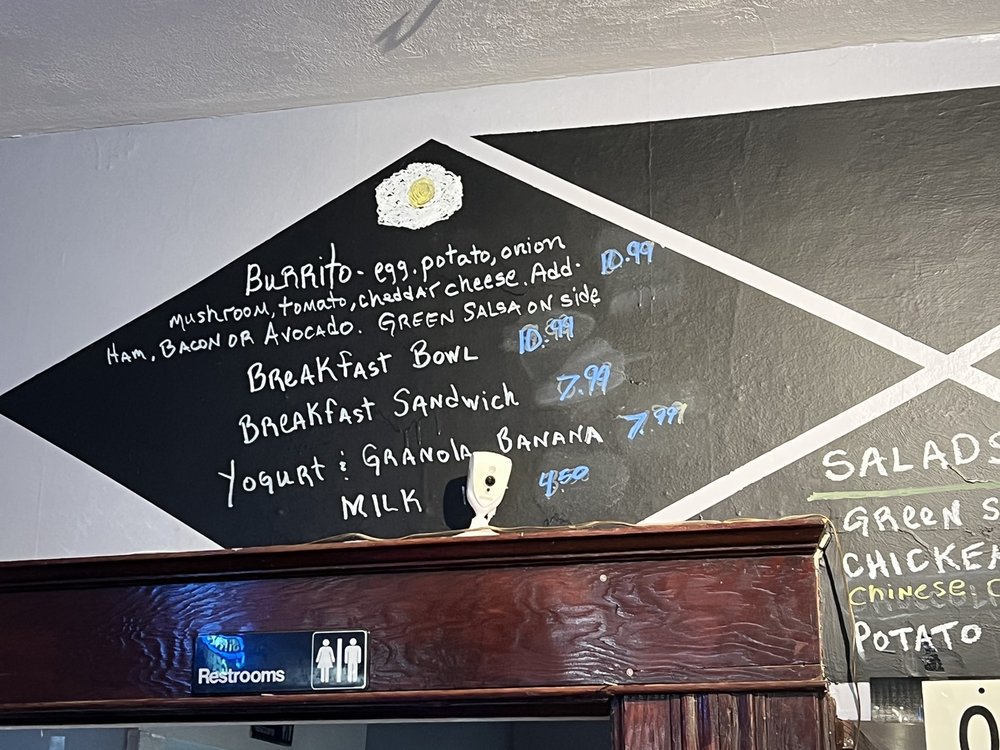 BURRITO - egg. potato, onion 10.99
mushroom, tomato, cheddar cheese. Add.
HAM, BACON OR AVOCADO. GREEN SALSA ON side
BREAKfAST BOWL 10.99
BREAKfAST SANDwich 7.99
YOGURT & GRANOLA BANANA 7.99
MILK 4.50
SALADS
GReeN S
CHICKEN
CHINESE
POTATO
Restrooms
0